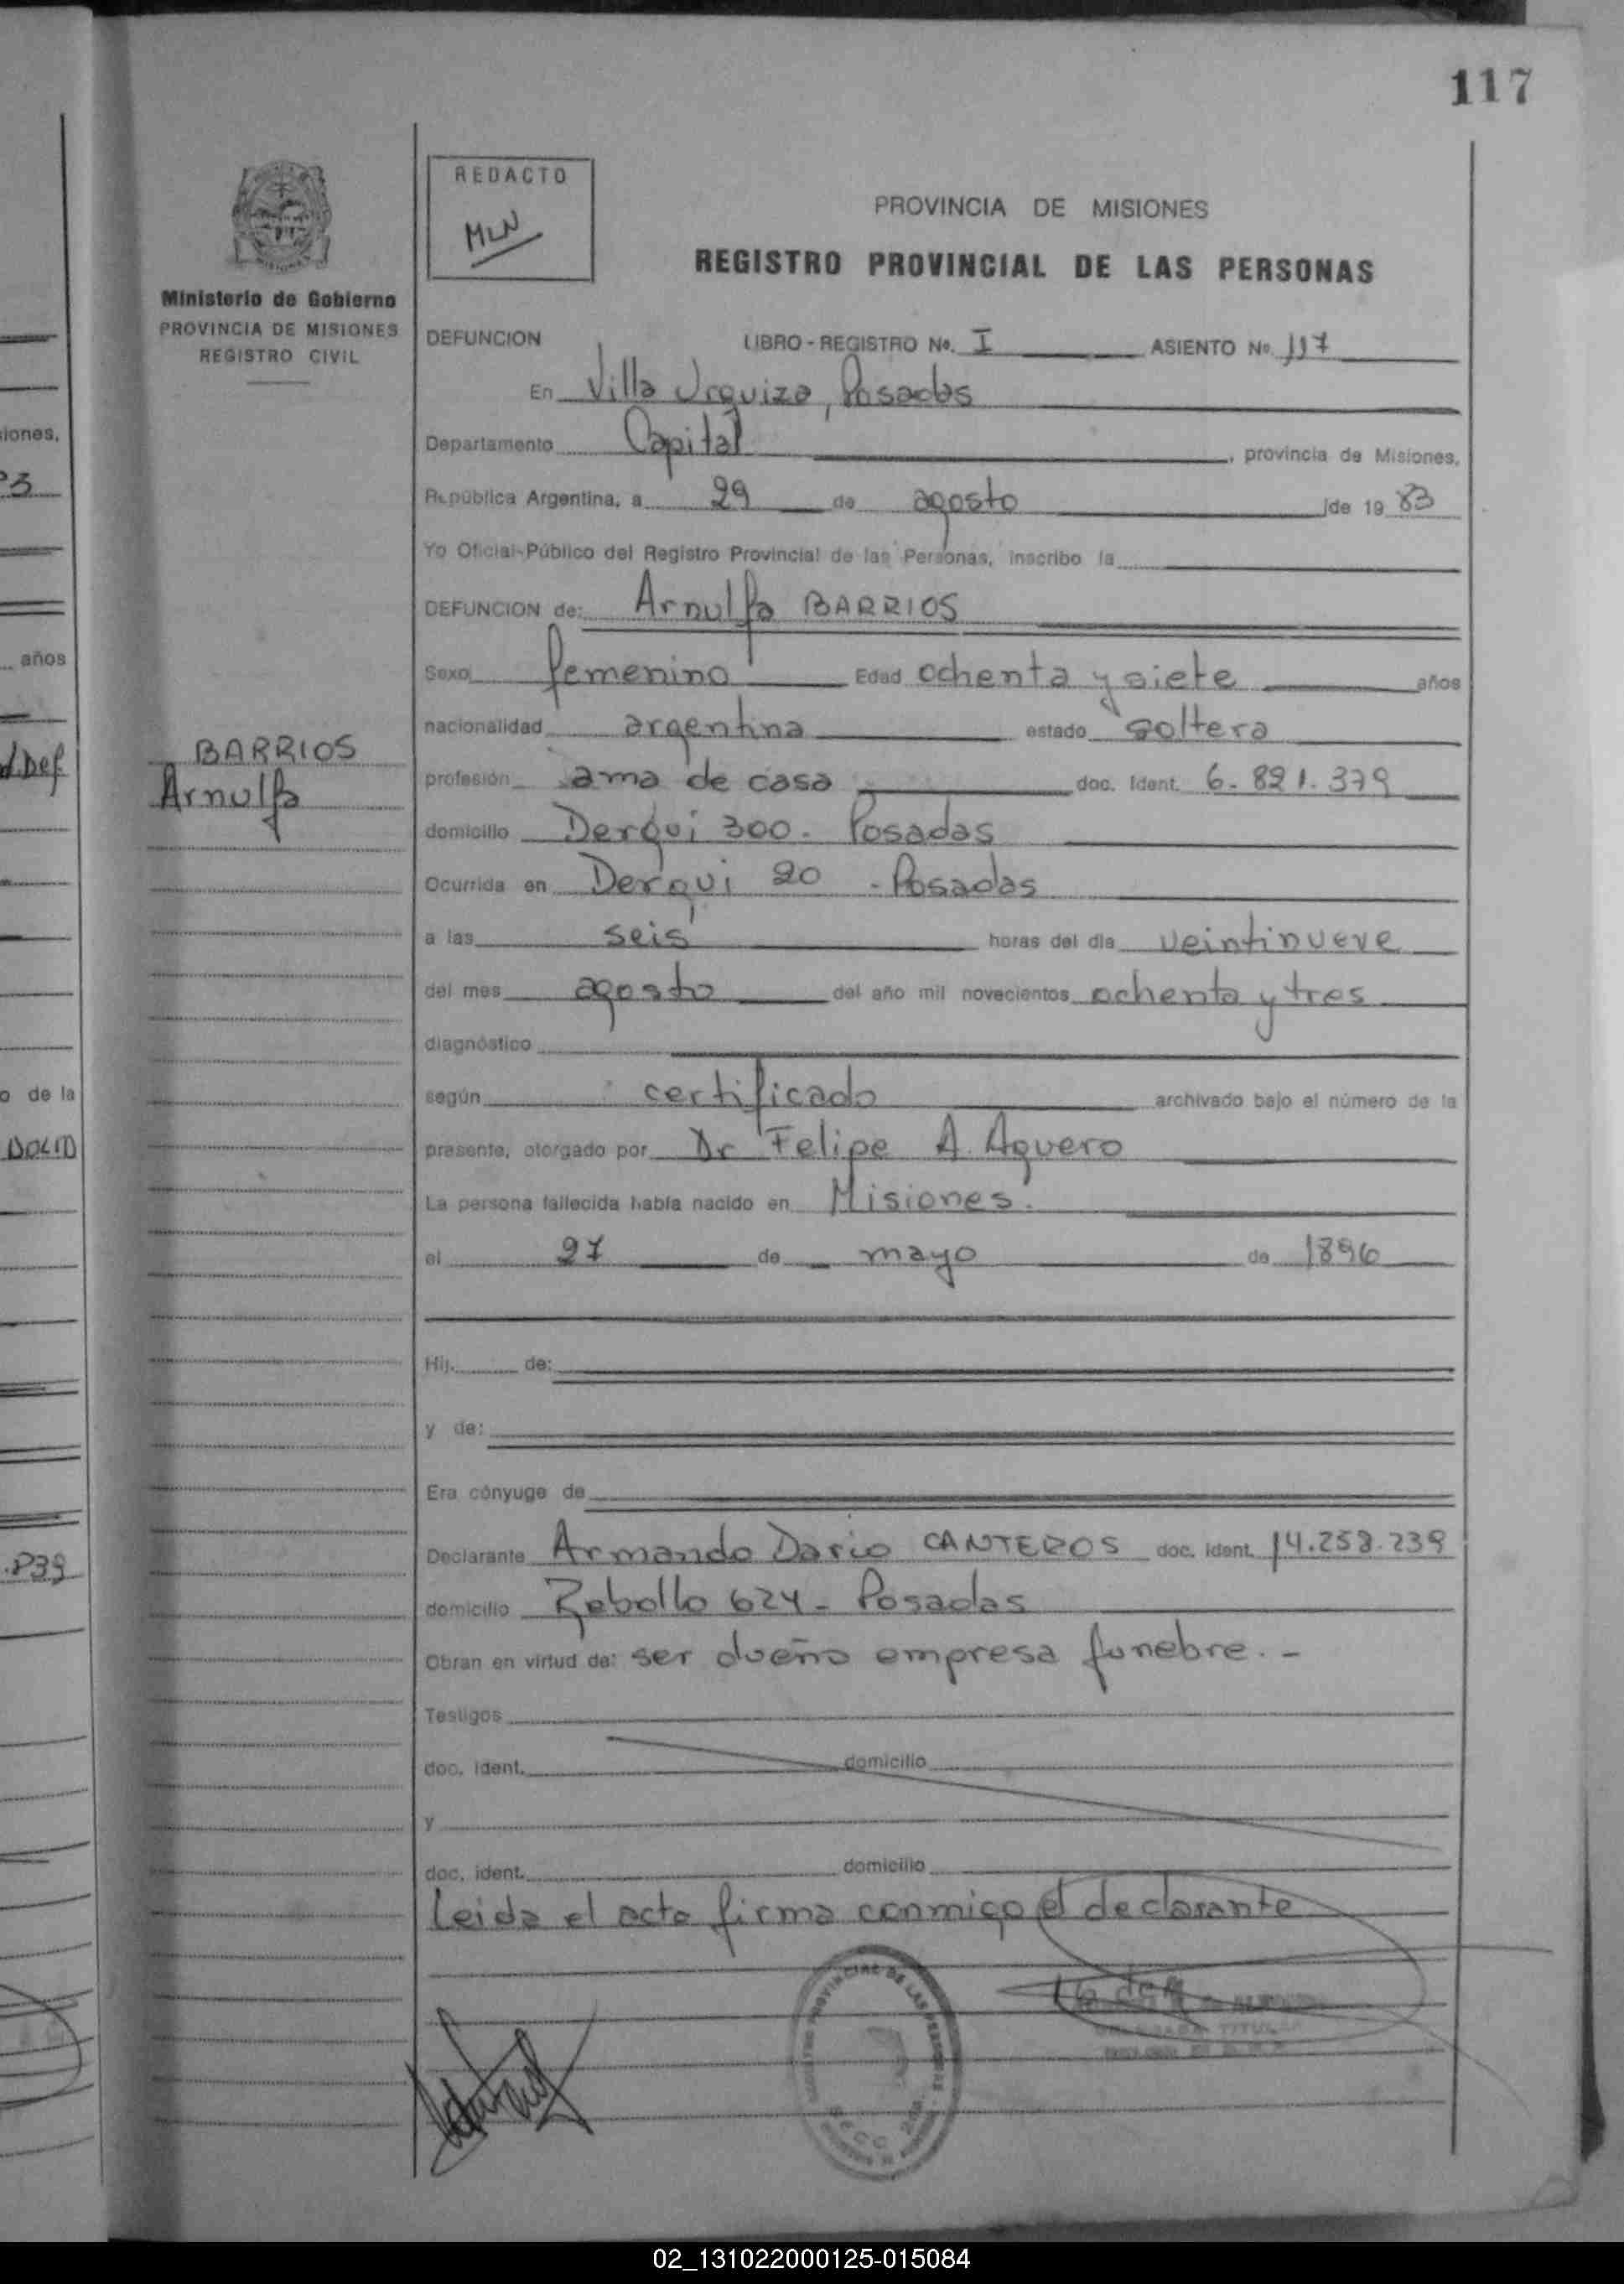 117
REDACTO
MLN
PROVINCIA DE MISIONES
REGISTRO PROVINCIAL DE LAS PERSONAS
Ministerio de Gobierno
PROVINCIA DE MISIONES
REGISTRO CIVIL
DEFUNCION LIBRO - REGISTRO No. I ASIENTO No. 117
En Villa Urquiza, Posadas
Departamento Capital, provincia de Misiones,
República Argentina, a 29 de agosto de 19 83
Yo Oficial-Público del Registro Provincial de las Personas, inscribo la
DEFUNCION de: Arnulfa BARRIOS
Sexo femenino Edad ochenta y siete años
nacionalidad argentina estado soltera
BARRIOS
Arnulfa
profesión ama de casa doc. Ident. 6.821.379
domicilio Derqui 300. Posadas
Ocurrida en Derqui 20 - Posadas
a las seis horas del dia veintinueve
del mes agosto del año mil novecientos ochenta y tres
diagnóstico
según certificado archivado bajo el número de la
presente, otorgado por Dr Felipe A. Aguero
La persona fallecida había nacido en Misiones.
el 27 de mayo de 1896
Hij. de:
y de:
Era cónyuge de
Declarante Armando Dario CANTEROS doc. ident. 14.258.239
domicilio Rebollo 624 - Posadas
Obran en virtud de: ser dueño empresa funebre. -
Testigos
doc. ident. domicilio
y
doc. ident. domicilio
Leida el acta firma conmigo el declarante
iones,
años
o de la
02_131022000125-015084